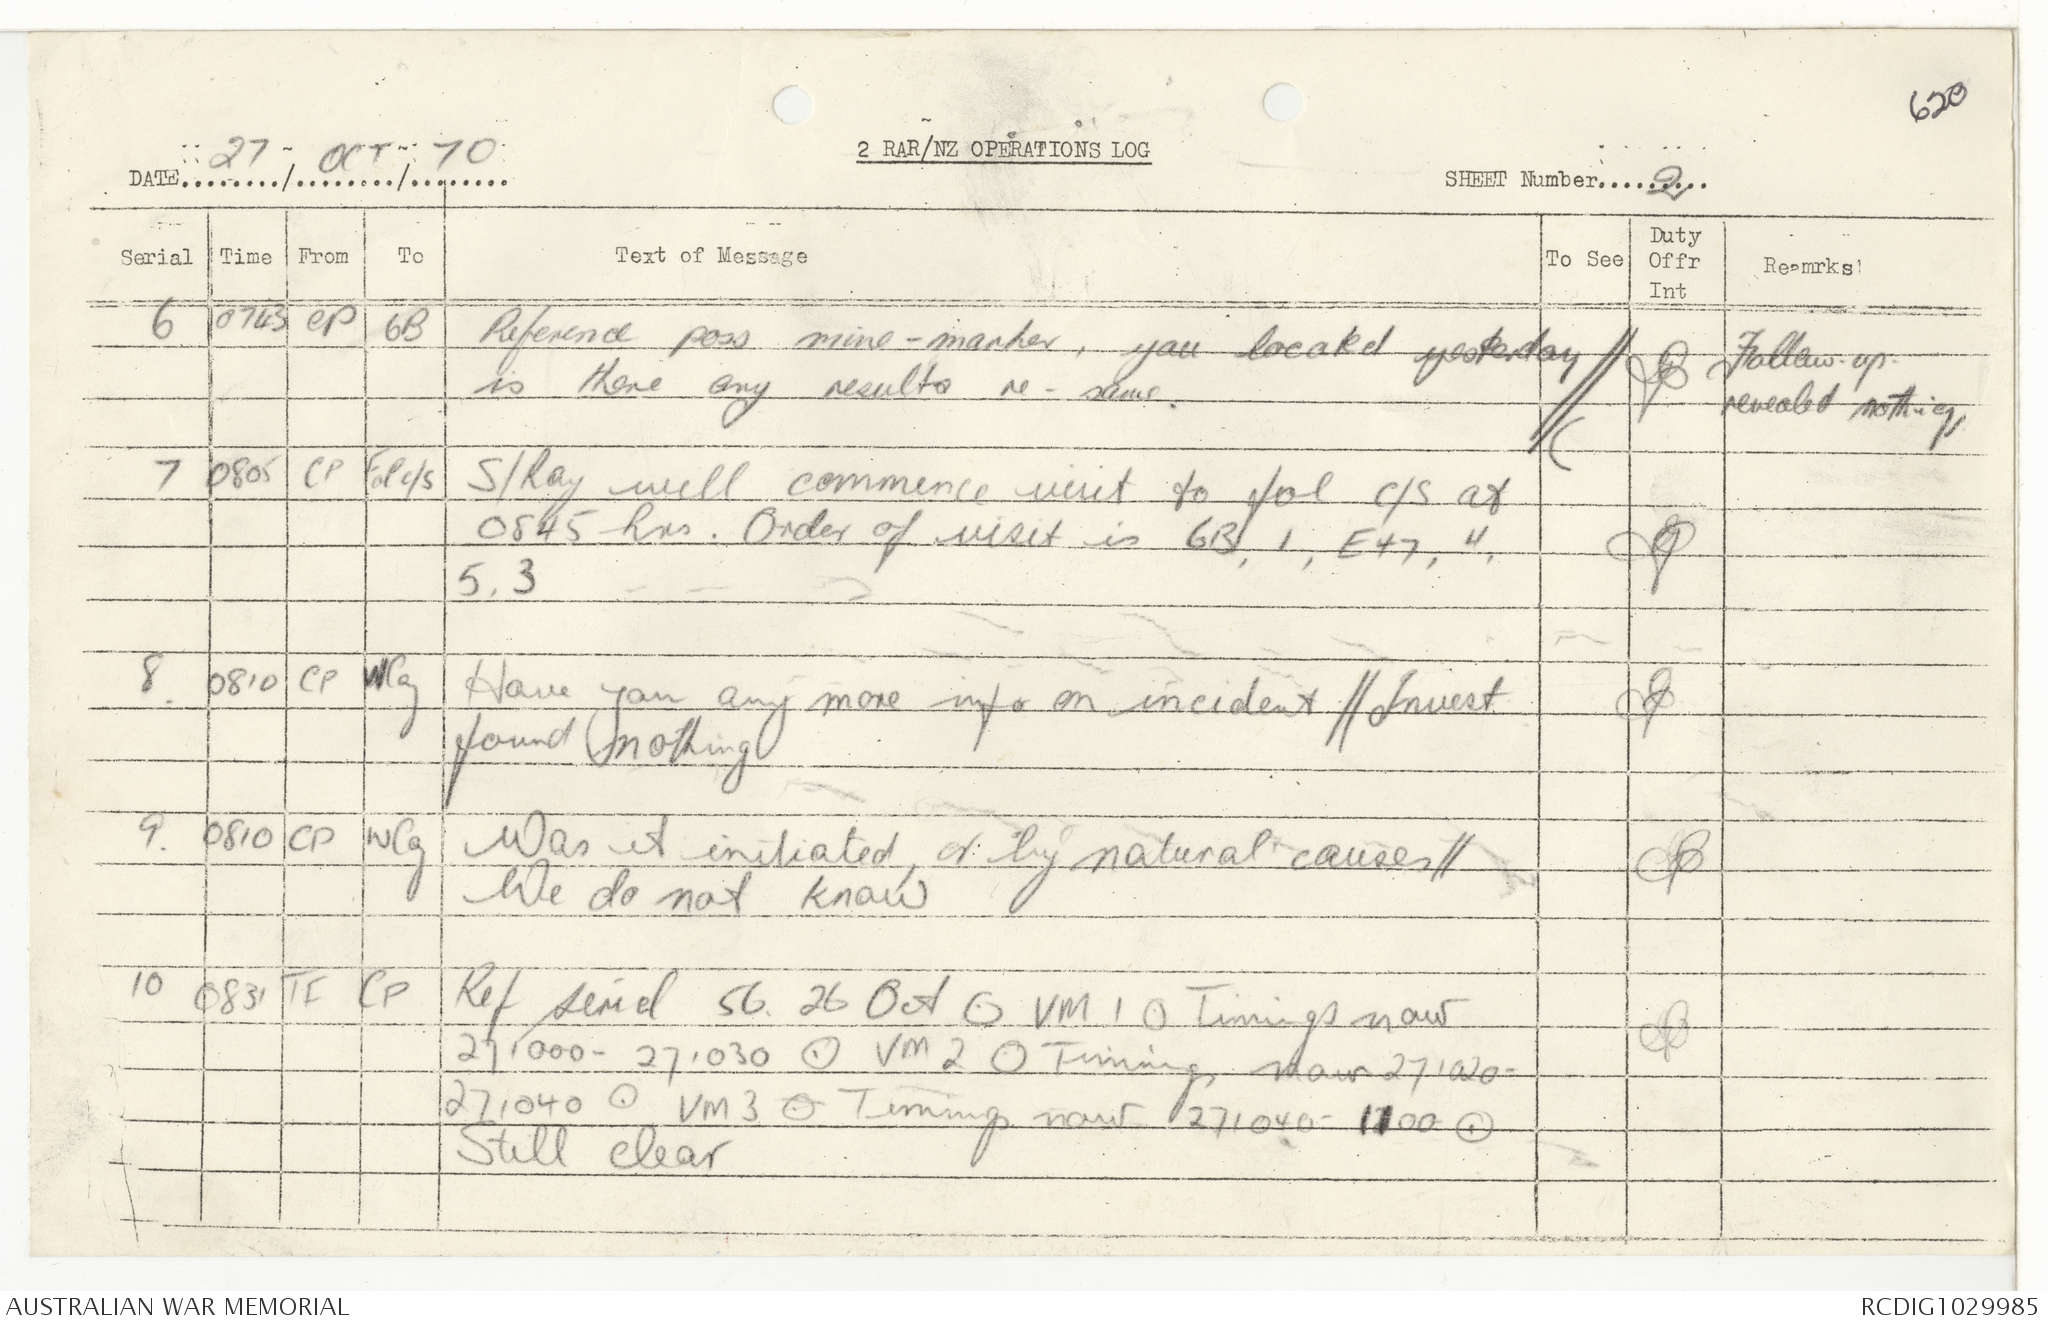 620
2 RAR/NZ OPERATIONS LOG
DATE 27 / OCT / 70
SHEET Number 2
Serial Time From To Text of Message To See Duty Offr Int Reamrks
6 0743 CP 6B Reference poss mine-marker, you located yesterday // Follow-up
is there any results re-same. revealed nothing
7 0805 CP Fol c/s S/Ray will commence visit to fol c/s at
0845 hrs. Order of visit is 6B, 1, E47, 4,
5, 3
8. 0810 CP WCg Have you any more info on incident // Invest
found nothing
9. 0810 CP WCg Was it initiated, or by natural causes //
We do not know
10 0831 TF CP Ref serial 56. 26 Oct ⊙ VM 1 ⊙ Timings now
271000- 271030 ⊙ VM 2 ⊙ Timings now 271020-
271040 ⊙ VM3 ⊙ Timings now 271040- 1100 ⊙
Still clear
AUSTRALIAN WAR MEMORIAL
RCDIG1029985